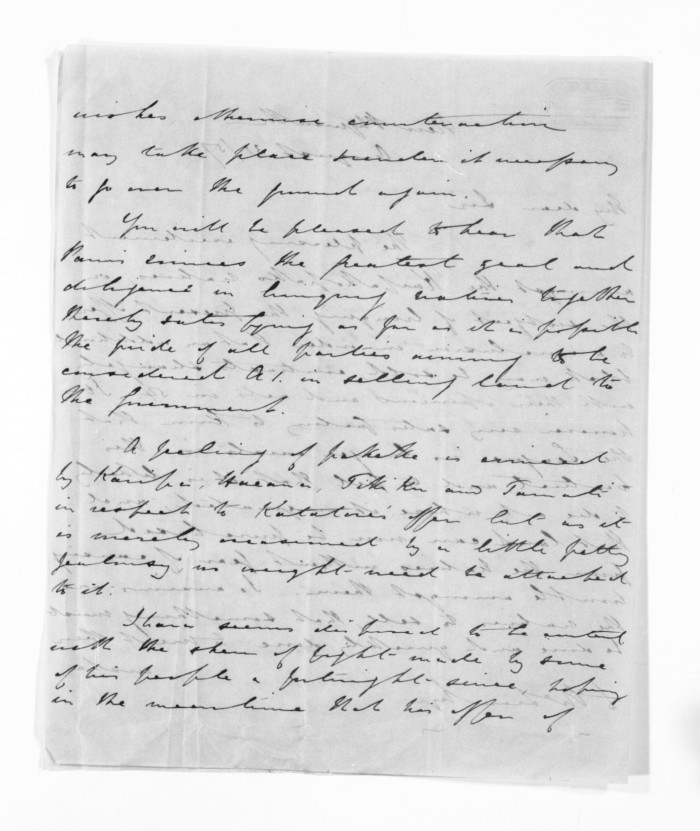 wishes otherwise counteraction
may take place & render it necessary
to go over the ground again.
You will be pleased to hear that
evinces the greatest zeal and
diligence in bringing natives together
thereby satisfying as far as it is possible
the pride of all parties aiming to be
considered A1. in selling land to
the Government.
A feeling of is evinced
by and Tamati
in respect to Katatore's offer but as it
is merely occasioned by a little petty
jealousy no weight need be attached
to it.
Ihaia seems disposed to be
with the sham of fight made by some
of his people a fortnight since, hoping
in the meantime that his offer of